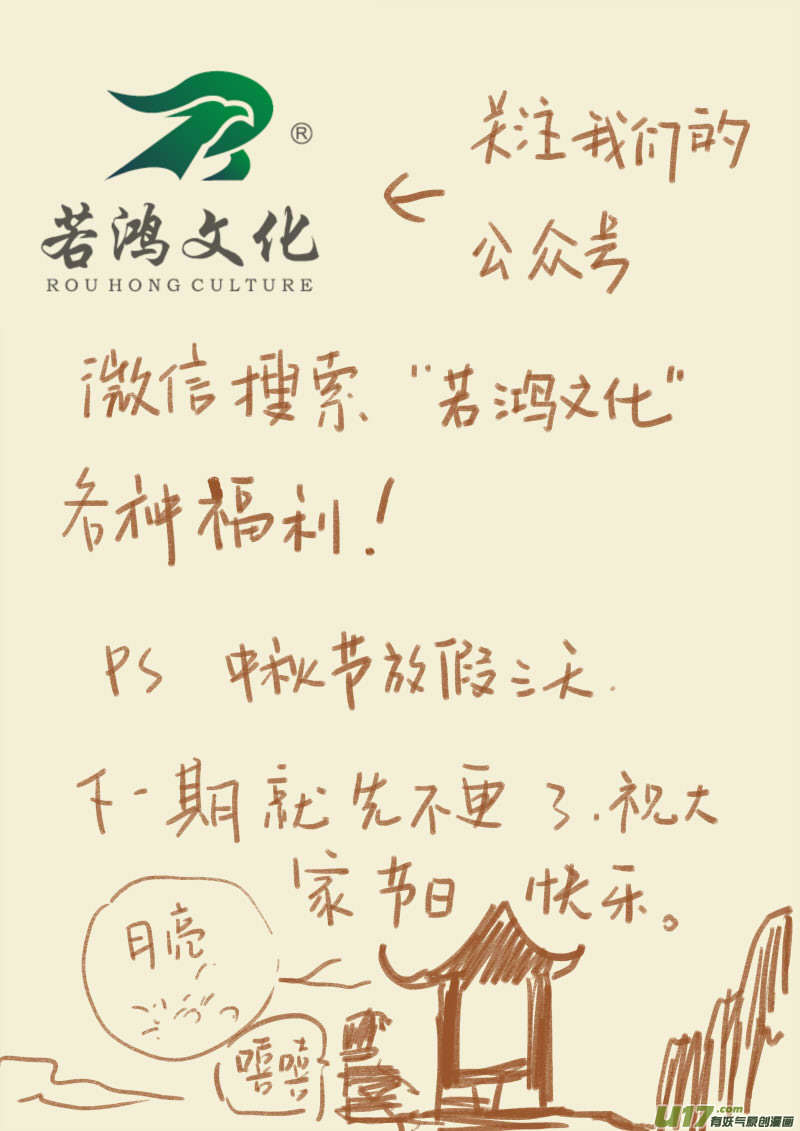 ®
若鸿文化
ROU HONG CULTURE
← 关注我们的
公众号
微信搜索“若鸿文化”
各种福利!
PS 中秋节放假三天.
下一期就先不更了.祝大
家节日 快乐。
月亮
嘻嘻
U17.com
有妖气原创漫画